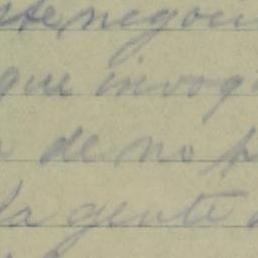 este negoci
que invoq
de no p
la gente